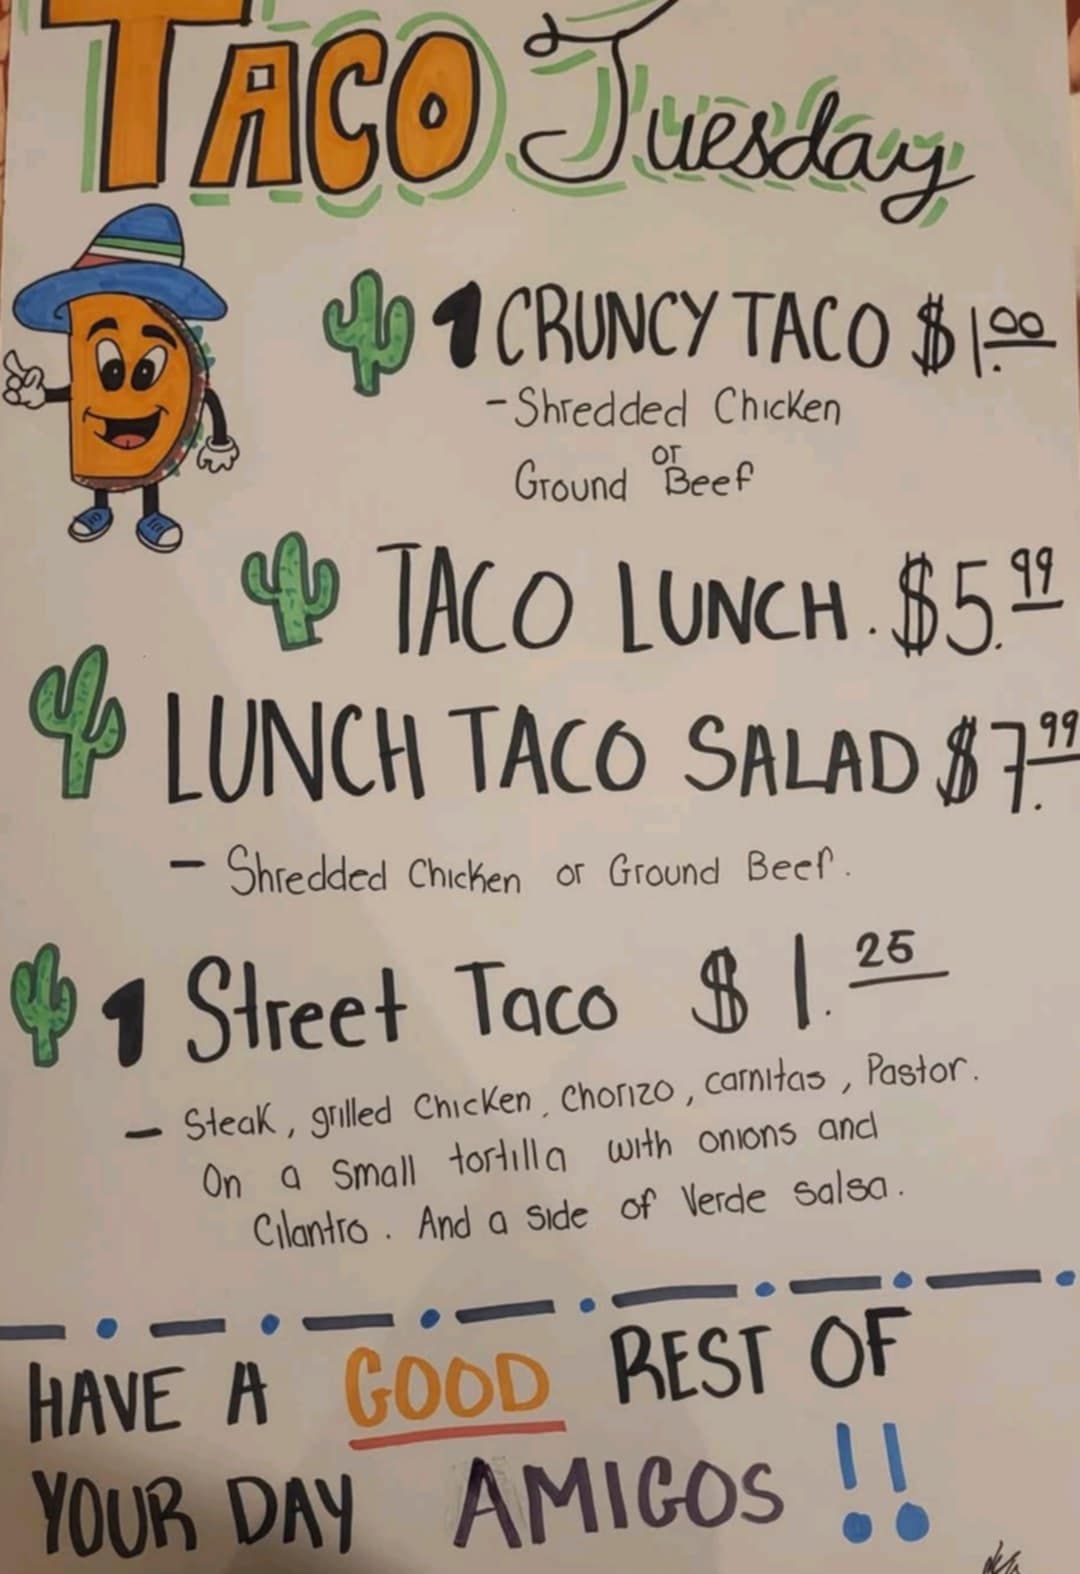 TACO Tuesday
1 CRUNCY TACO $1.00
- Shredded Chicken
or
Ground Beef
TACO LUNCH . $5.99
LUNCH TACO SALAD $7.99
- Shredded Chicken or Ground Beef.
1 Street Taco $1.25
- Steak, grilled Chicken, Chorizo, carnitas, Pastor.
On a Small tortilla with onions and
Cilantro. And a side of Verde Salsa.
HAVE A GOOD REST OF
YOUR DAY AMIGOS !!